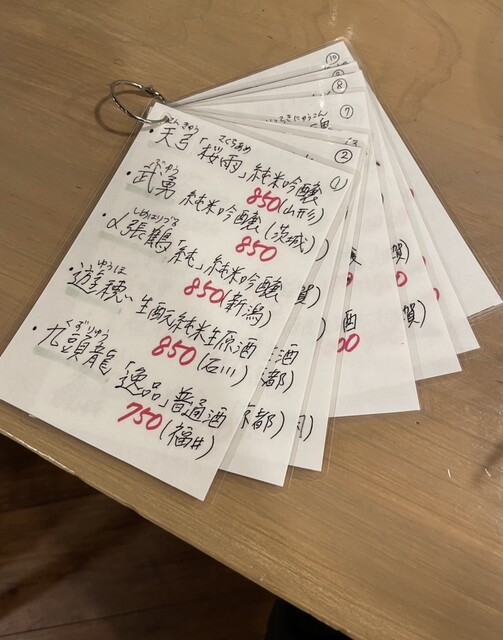 ⑩
⑧
⑦
②
①
てんきゅう さくらあめ
・天弓「桜雨」純米吟醸
850(山形)
ぶゆう
・武勇 純米吟醸(茨城)
850
しめはりつる
・〆張鶴「純」純米吟醸
850(新潟)
ゆうほ
・遊穂 生酛純米生原酒
850(石川)
くずりゅう
・九頭龍「逸品」普通酒
750(福井)
賀)
賀)
酒
都)
京都)